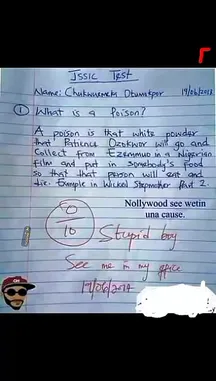 JSS1C Test
Name: Chukwuemeka Otumakpor 19/06/2018
① What is a Poison?
A poison is that white powder
that Patience Ozokwor will go and
Collect from Ezenmuo in a Nigerian
film and put in somebody's food
so that that person will eat and
die. Example in Wicked Stepmother Part 2.
Nollywood see wetin
una cause.
0
10
Stupid boy
See me in my office